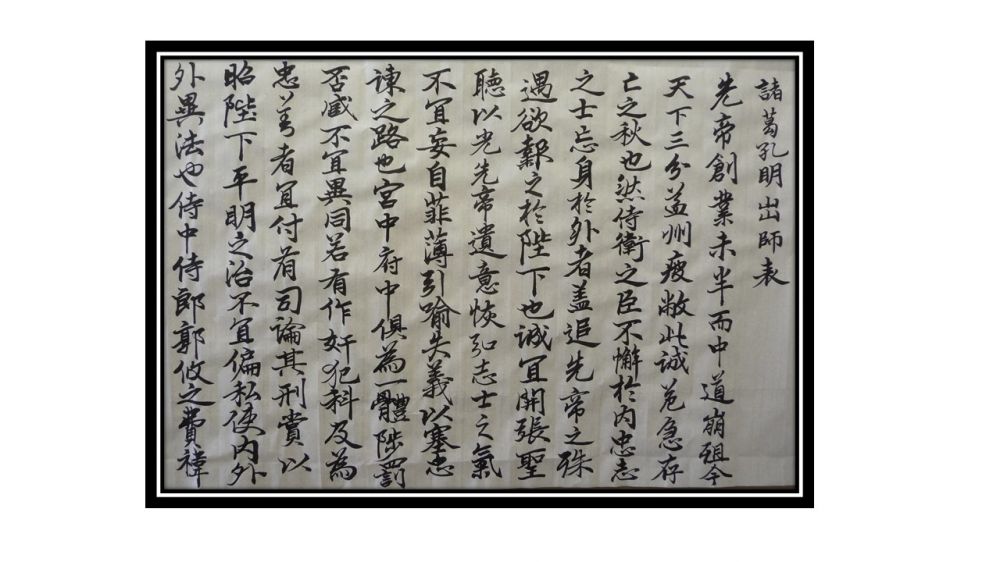 諸葛孔明出師表
先帝創業未半而中道崩殂今
天下三分益州疲敝此誠危急存
亡之秋也然侍衛之臣不懈於內忠志
之士忘身於外者蓋追先帝之殊
遇欲報之於陛下也誠宜開張聖
聽以光先帝遺意恢弘志士之氣
不宜妄自菲薄引喻失義以塞忠
諫之路也宮中府中俱為一體陟罰
否臧不宜異同若有作奸犯科及為
忠善者宜付有司論其刑賞以
昭陛下平明之治不宜偏私使內外
外異法也侍中侍郎郭攸之費禕